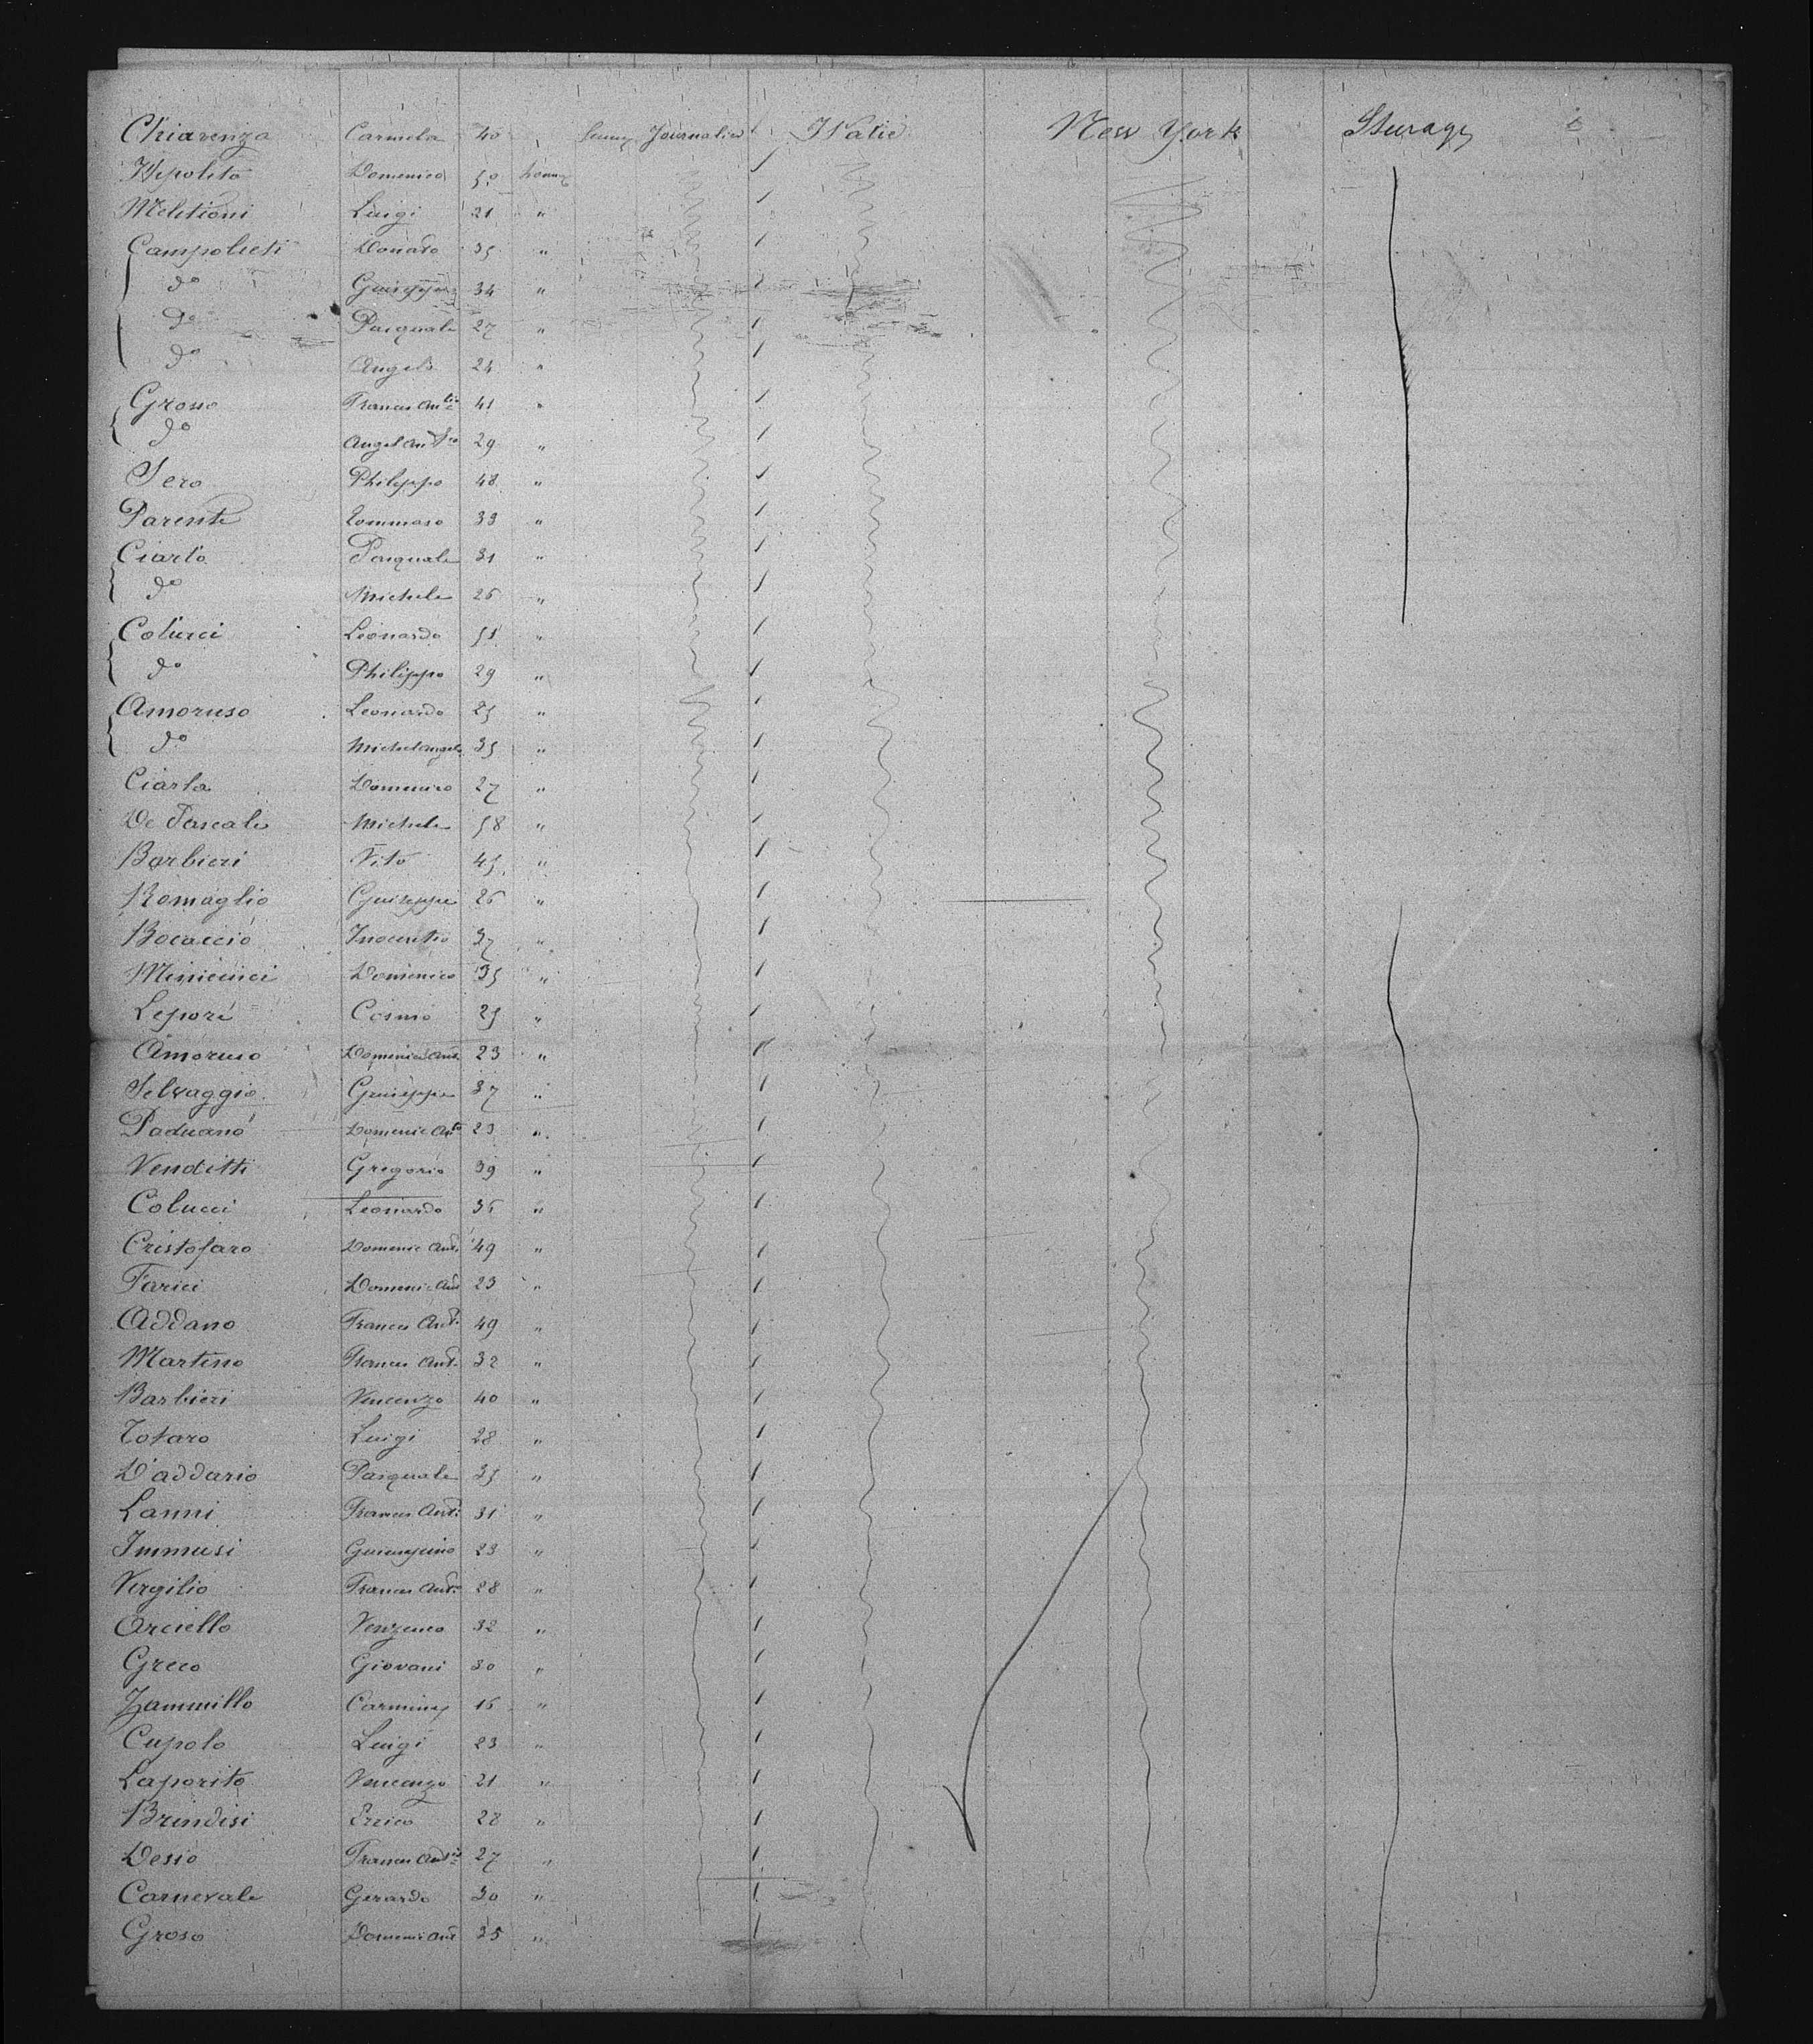 Chiarenza Carmela 40 Journalier Italie New York Steerage
Hipolito Domenico 50 homme
Melitioni Luigi 21 "
Campolieti Donato 35 "
do Guiseppe 34 "
do Pasquale 27 "
do Angelo 24 "
Grosso Francis Anto 41 "
do Angel Anto 29 "
Sero Philippo 48 "
Parente Tommaso 33 "
Ciarlo Pasquale 31 "
do Michele 26 "
Colucci Leonardo 51 "
do Philippo 29 "
Amoruso Leonardo 25 "
do Michelangelo 35 "
Ciarla Domenico 27 "
De Pascale Michele 58 "
Barbieri Vito 45 "
Romaglio Guiseppe 26 "
Bocaccio Inocentio 37 "
Minicucci Domenico 35 "
Lepore Cosmo 25 "
Amoruso Domenic Ant. 23 "
Selvaggio Guiseppe 37 "
Paduano Domenic Anto 23 "
Venditti Gregorio 39 "
Colucci Leonardo 36 "
Cristofaro Domenic Ant. 49 "
Farici Domenic Ant 23 "
Addano Francis Ant. 49 "
Martino Francis Ant. 32 "
Barbieri Vincenzo 40 "
Totaro Luigi 28 "
D'addario Pasquale 35 "
Lanni Francis Ant. 31 "
Immusi 23 "
Virgilio Francis Ant. 28 "
Orciello Venzenco 32 "
Greco Giovani 30 "
Zammillo Carminy 16 "
Cupolo Luigi 23 "
Laporito Vencenzo 21 "
Brindisi Errico 28 "
Desio Francis Anto 27 "
Carnevale Gerardo 30 "
Groso Domenic Ant 25 "